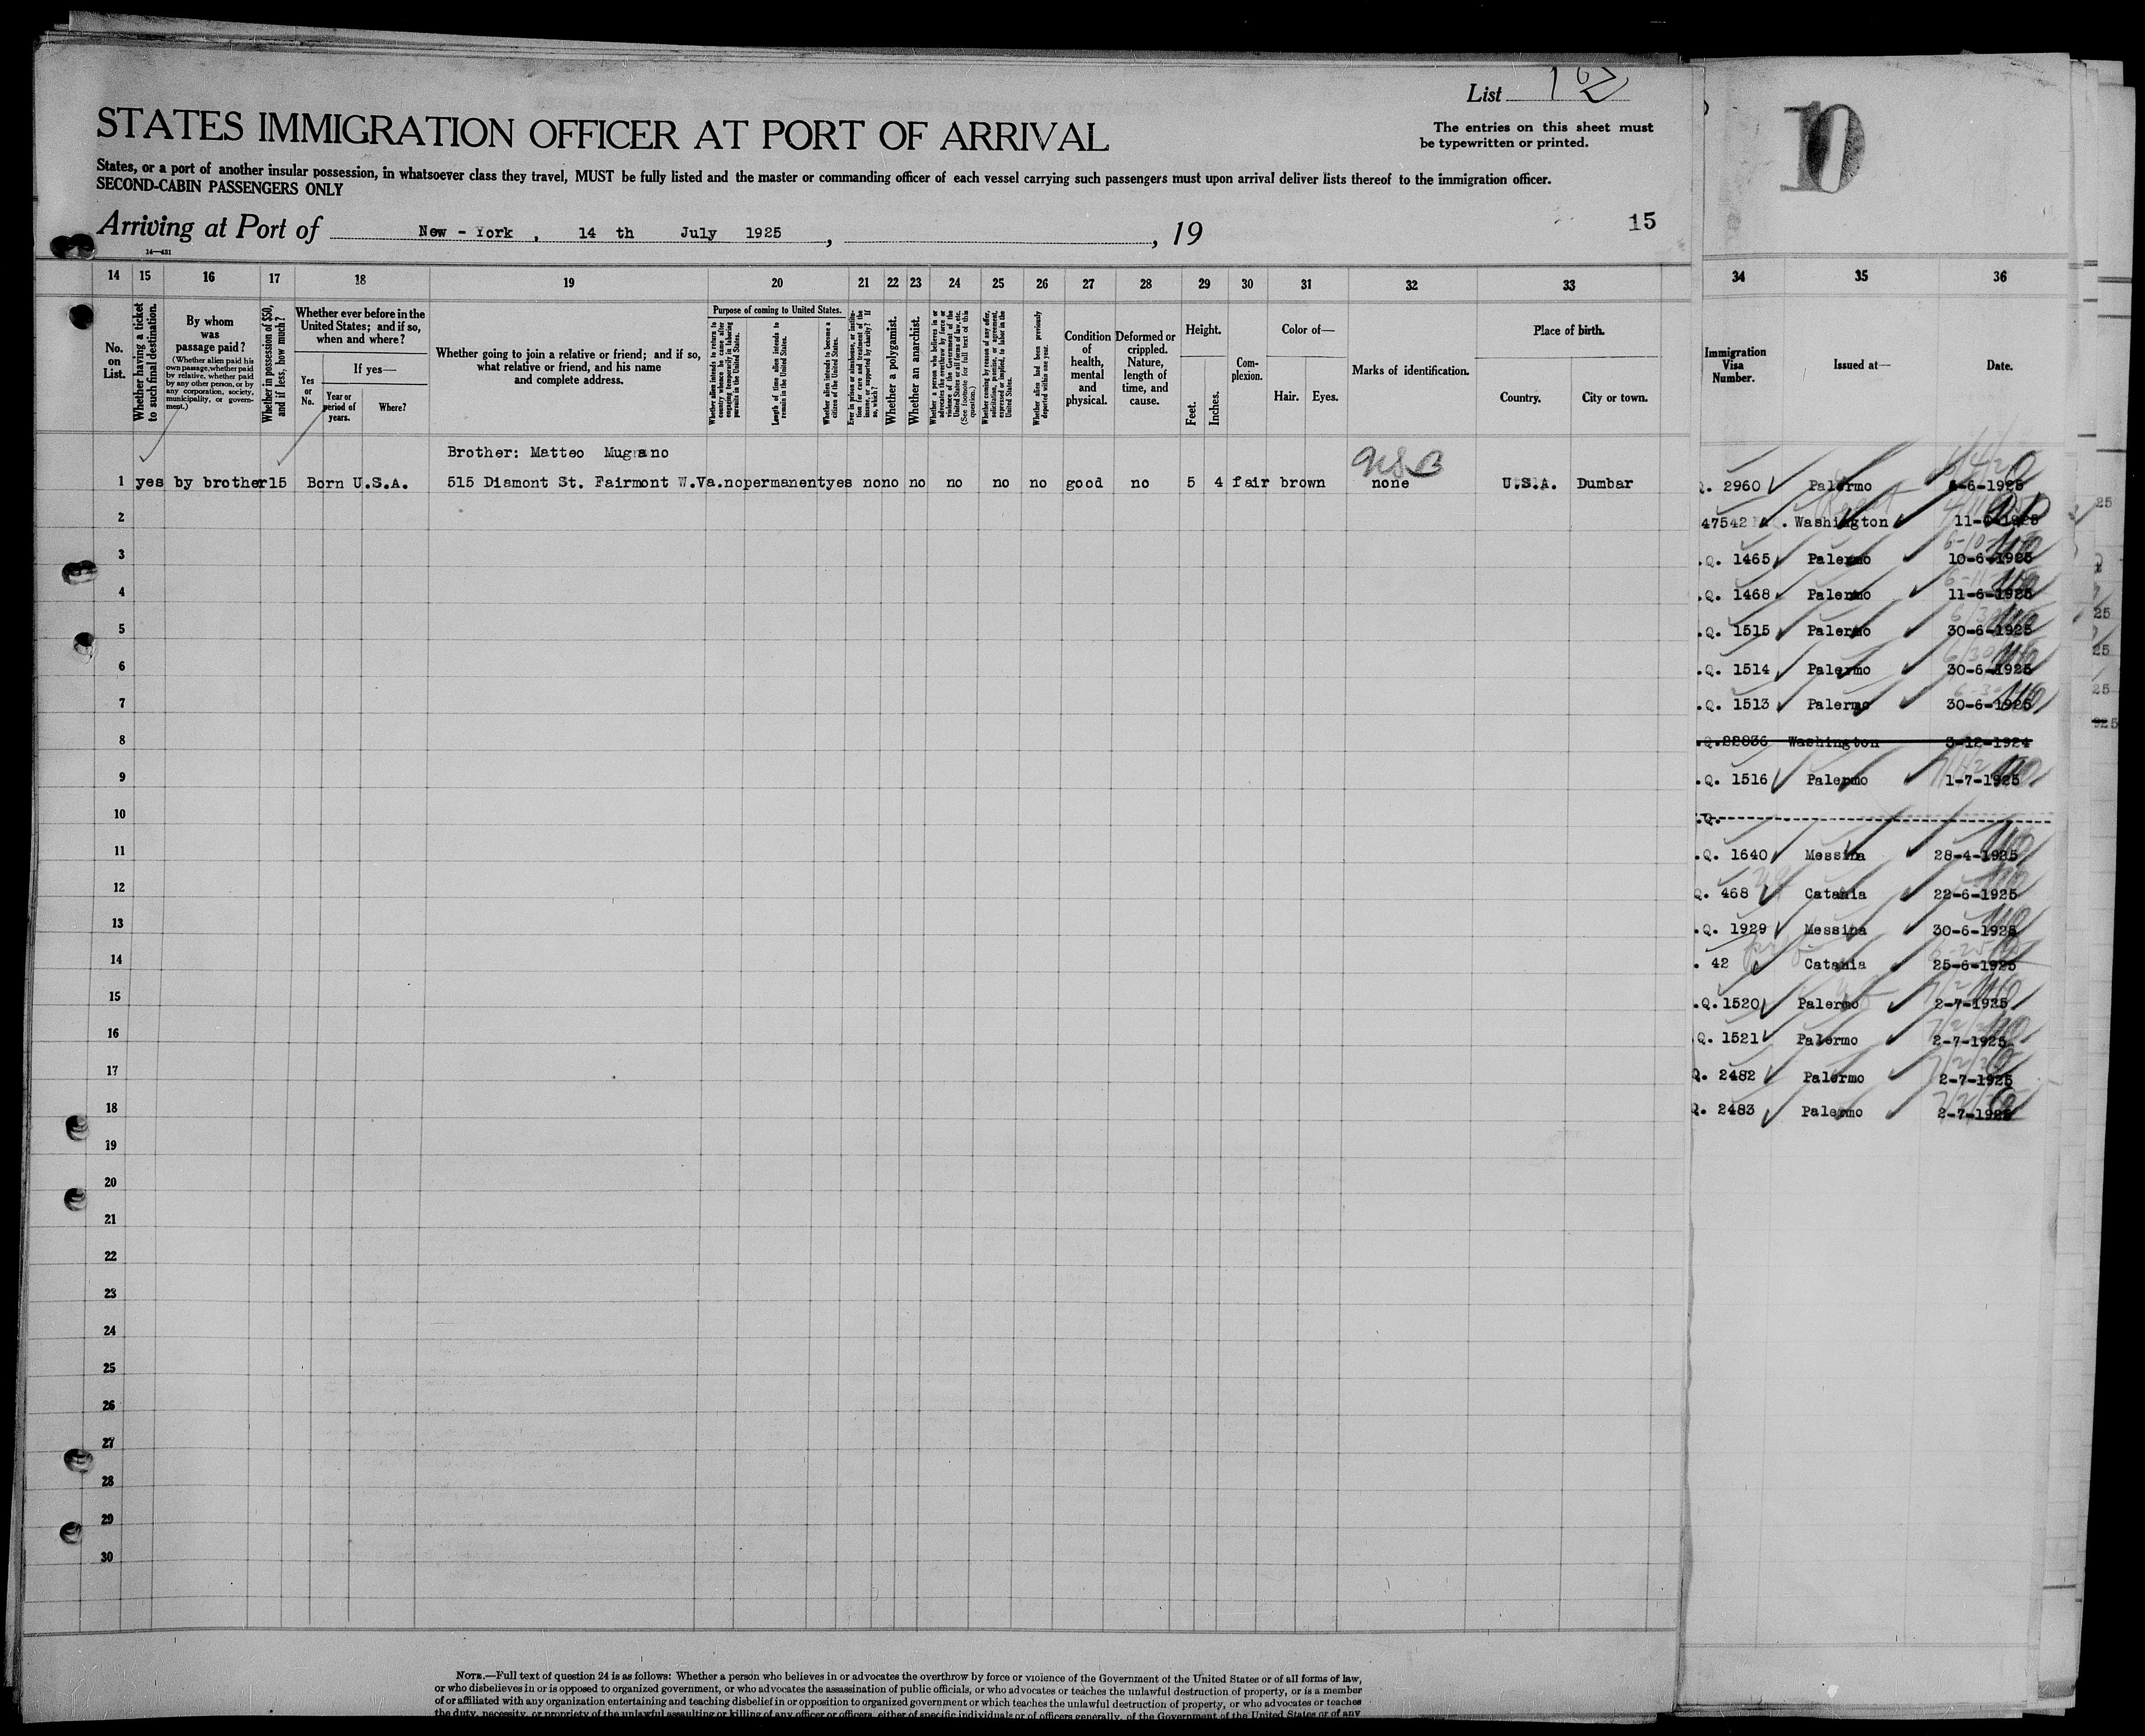 List 162
STATES IMMIGRATION OFFICER AT PORT OF ARRIVAL
The entries on this sheet must
be typewritten or printed.
States, or a port of another insular possession, in whatsoever class they travel, MUST be fully listed and the master or commanding officer of each vessel carrying such passengers must upon arrival deliver lists thereof to the immigration officer.
SECOND-CABIN PASSENGERS ONLY
Arriving at Port of New - York , 14 th July 1925 , , 19
15
14—431
14 15 16 17 18 19 20 21 22 23 24 25 26 27 28 29 30 31 32 33
No. on List.
Whether having a ticket to such final destination.
By whom was passage paid?
(Whether alien paid his own passage, whether paid by relative, whether paid by any other person, or by any corporation, society, municipality, or government.)
Whether in possession of $50, and if less, how much?
Whether ever before in the United States; and if so, when and where?
Yes or No.
If yes—
Year or period of years.
Where?
Whether going to join a relative or friend; and if so, what relative or friend, and his name and complete address.
Purpose of coming to United States.
Whether alien intends to return to country whence he came after engaging temporarily in laboring pursuits in the United States.
Length of time alien intends to remain in the United States.
Whether alien intends to become a citizen of the United States.
Ever in prison or almshouse, or institution for care and treatment of the insane, or supported by charity? If so, which?
Whether a polygamist.
Whether an anarchist.
Whether a person who believes in or advocates the overthrow by force or violence of the Government of the United States or all forms of law, etc. (See footnote for full text of this question.)
Whether coming by reason of any offer, solicitation, promise, or agreement, expressed or implied, to labor in the United States.
Whether alien had been previously deported within one year.
Condition of health, mental and physical.
Deformed or crippled. Nature, length of time, and cause.
Height.
Feet.
Inches.
Complexion.
Color of—
Hair.
Eyes.
Marks of identification.
Place of birth.
Country.
City or town.
Brother: Matteo Mugnano
USB
1 yes by brother 15 Born U.S.A. 515 Diamont St. Fairmont W.Va. no permanent yes no no no no no no good no 5 4 fair brown none U.S.A. Dumbar
2
3
4
5
6
7
8
9
10
11
12
13
14
15
16
17
18
19
20
21
22
23
24
25
26
27
28
29
30
NOTE.—Full text of question 24 is as follows: Whether a person who believes in or advocates the overthrow by force or violence of the Government of the United States or of all forms of law,
or who disbelieves in or is opposed to organized government, or who advocates the assassination of public officials, or who advocates or teaches the unlawful destruction of property, or is a member
of or affiliated with any organization entertaining and teaching disbelief in or opposition to organized government or which teaches the unlawful destruction of property, or who advocates or teaches
the duty, necessity, or propriety of the unlawful assaulting or killing of any officer or officers, either of specific individuals or of officers generally, of the Government of the United States or of any
10
34 35 36
Immigration Visa Number.
Issued at—
Date.
. 2960 Palermo 4-6-1925
47542 Washington 11-6-1925
.Q. 1465 Palermo 10-6-1925
.Q. 1468 Palermo 11-6-1925
.Q. 1515 Palermo 30-6-1925
.Q. 1514 Palermo 30-6-1925
.Q. 1513 Palermo 30-6-1925
.Q.22836 Washington 3-12-1924
.Q. 1516 Palermo 1-7-1925
.Q.
.Q. 1640 Messina 28-4-1925
Q. 468 Catania 22-6-1925
.Q. 1929 Messina 30-6-1925
. 42 Catania 25-6-1925
.Q.1520 Palermo 2-7-1925
.Q. 1521 Palermo 2-7-1925
Q. 2482 Palermo 2-7-1925
Q. 2483 Palermo 2-7-1925
25
25
25
25
925